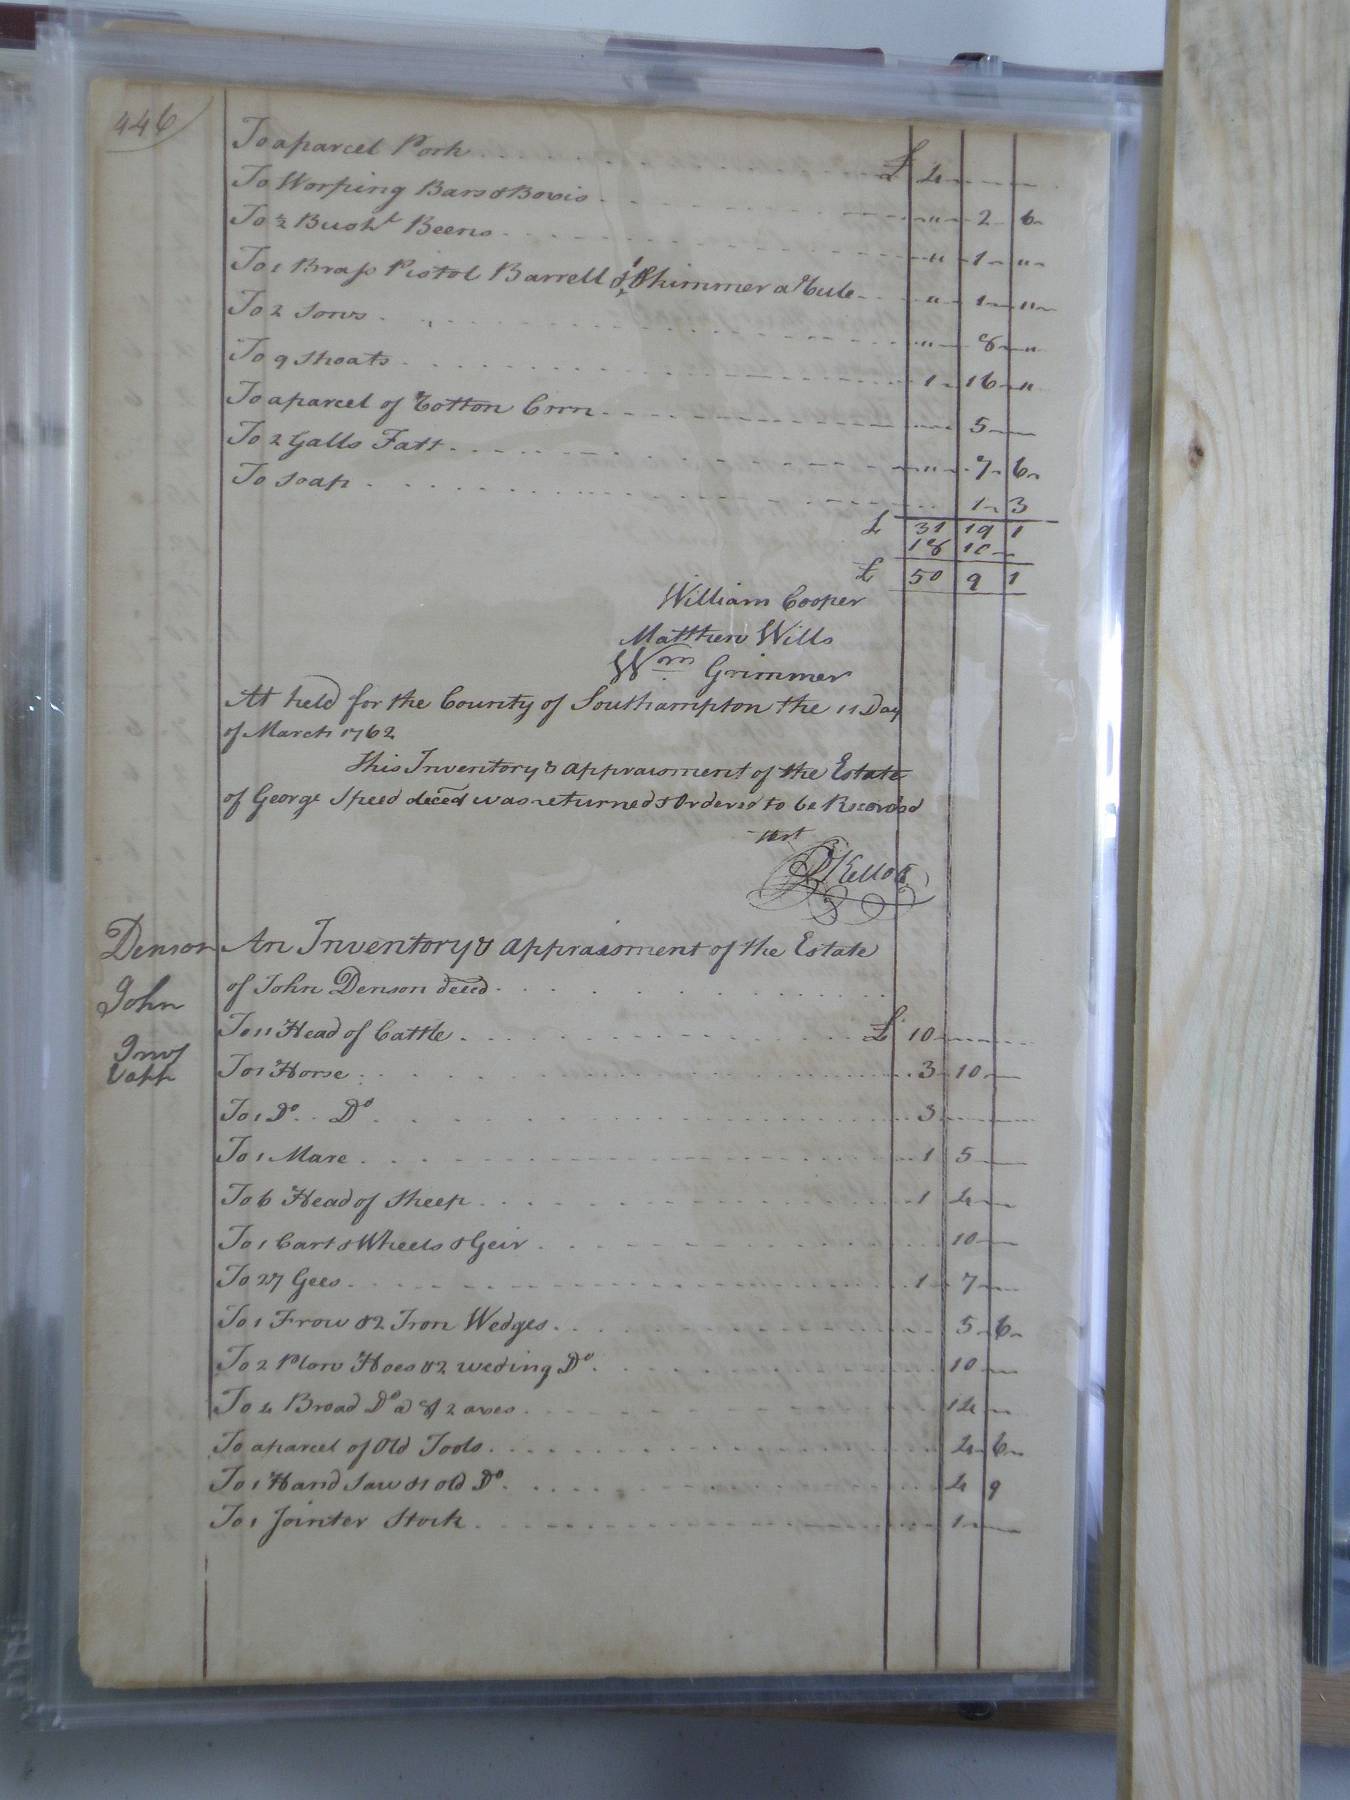 446
To a parcel Pork £ 4
To Worping Bars & Boxis " 2 6
To ½ Bushl Beens " 1 "
To 1 Brass Pistol Barrell & 1 Skimmer a Cule " 1 "
To 2 Sows " 8 "
To 9 Shoats 1 16 "
To a parcel of Cotton Corn 5
To 2 Galls Fatt " 7 6
To Soap 1 3
£ 31 19 1
18 10
£ 50 9 1
William Cooper
Matthew Wills
Wm Grimmer
At held for the County of Southampton the 11 Day
of March 1762
This Inventory & appraisment of the Estate
of George Speed deced was returned & Ordered to be Recorded
Test
Denson An Inventory & appraisment of the Estate
John of John Denson deced
To 11 Head of Cattle £ 10
Inv
& app To 1 Horse 3 10
To 1 Do Do 3
To 1 Mare 1 5
To 6 Head of Sheep 1 4
To 1 Cart & Wheels & Geir 10
To 27 Gees 1 7
To 1 Frow & 2 Iron Wedges 5 6
To 2 Plow Hoes & 2 weding Do 10
To 4 Broad Do & 2 axes 14
To a parcel of Old Tools 4 6
To 1 Hand Saw & 1 old Do 4 9
To 1 Jointer Stock 1